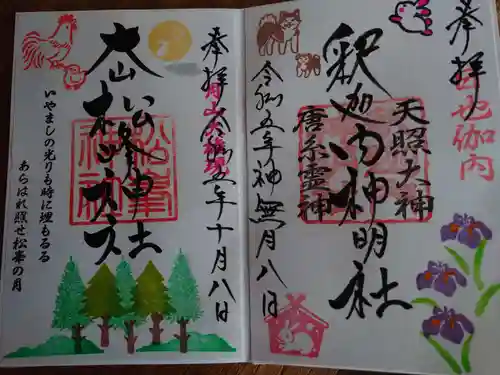 奉拝
釈迦内
天照大神
釈迦内神明社
唐糸霊神
令和五年神無月八日
奉拝
月山大権現
令和五年十月八日
松峰神社
いやましの光りも時に埋もるる
あらはれ照せ松峯の月